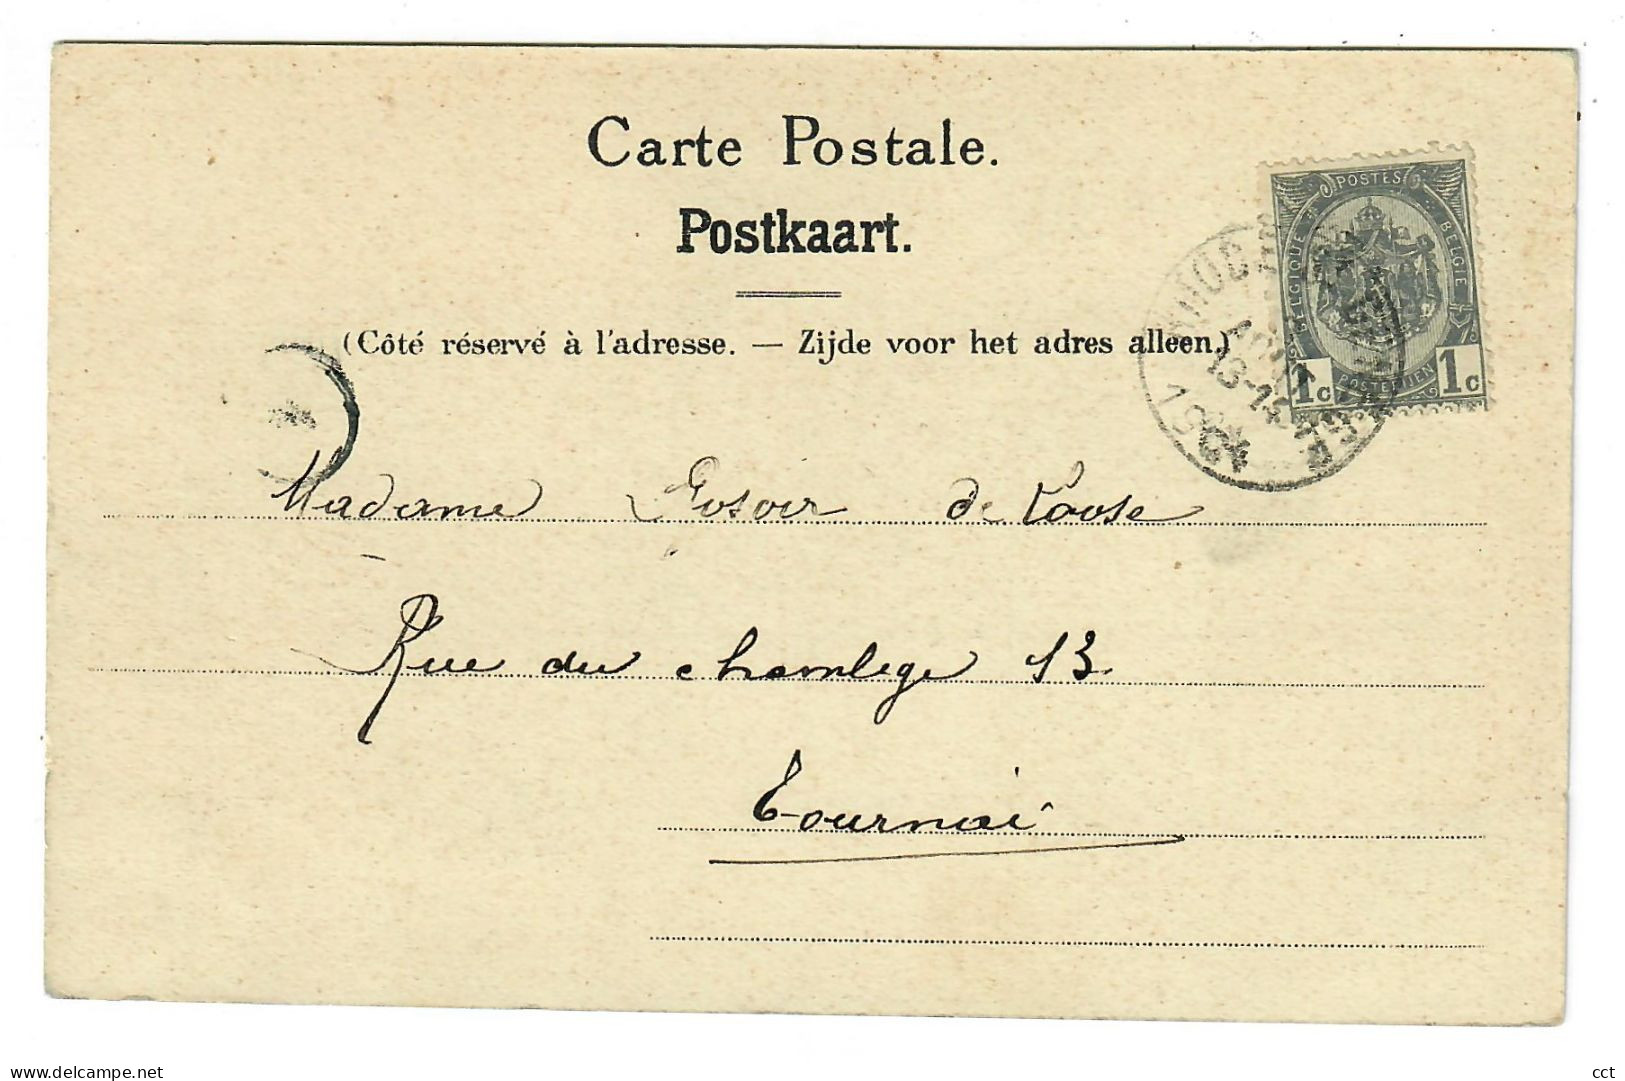 Carte Postale.
Postkaart.
(Côté réservé à l'adresse. — Zijde voor het adres alleen.)
POSTES
BELGIQUE
BELGIE
POSTERIJEN
1c 1c
13-14
Madame Gosoir de Loose
Rue du chambge 13.
Tournai
www.delcampe.net
cct